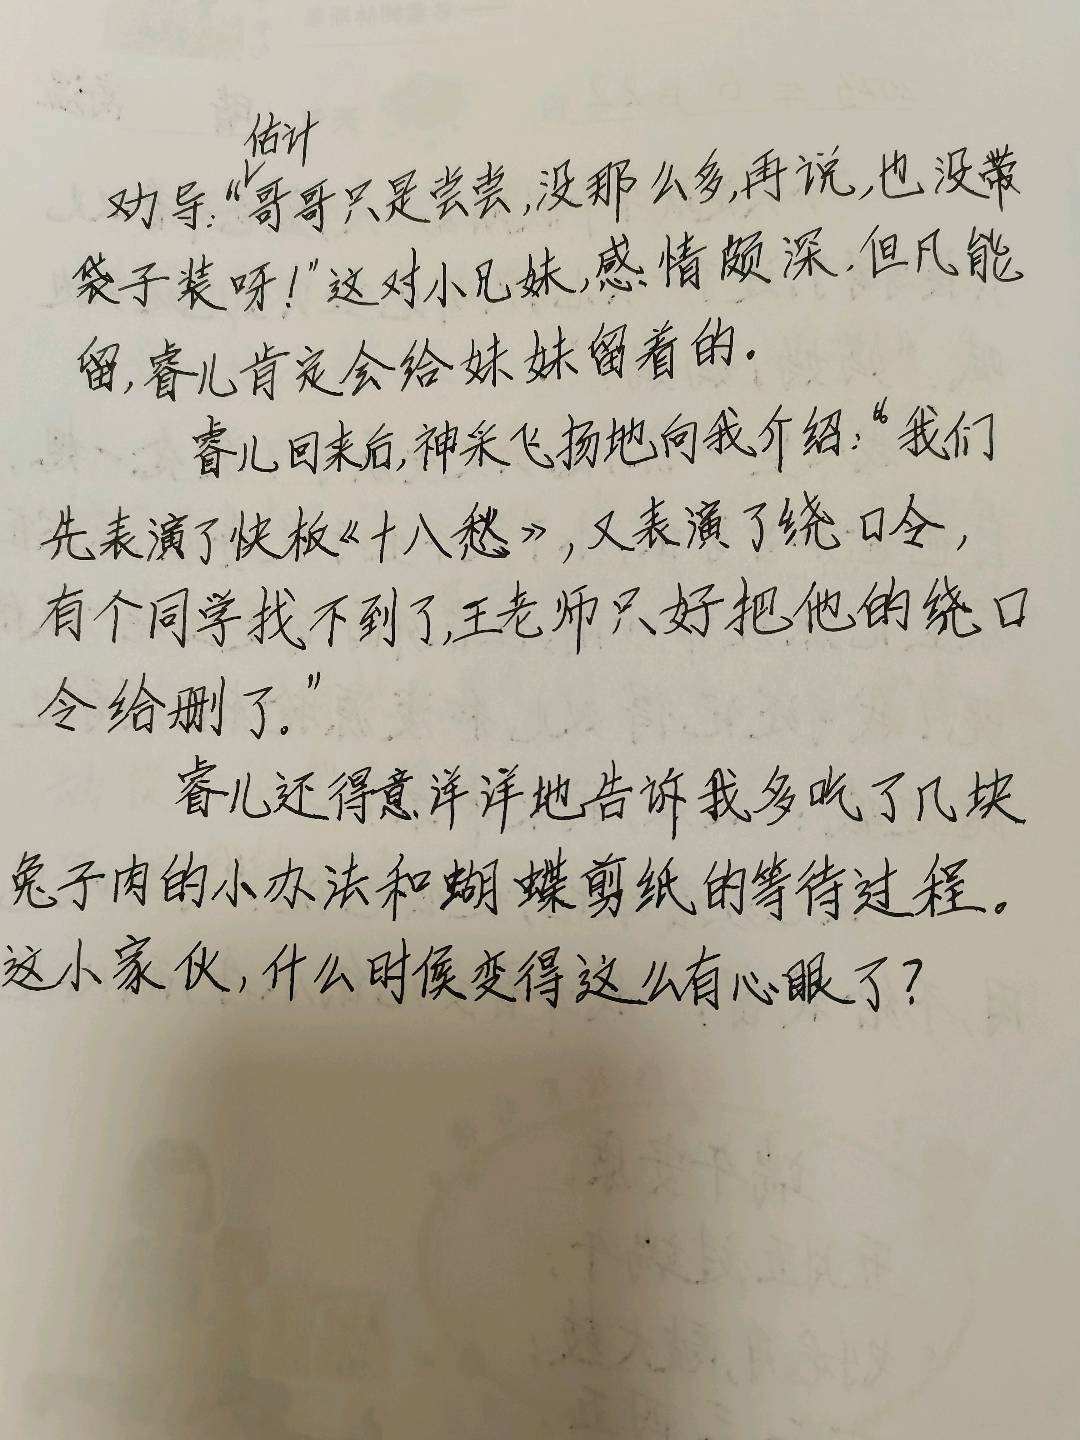 估计
劝导:“哥哥只是尝尝,没那么多,再说,也没带
袋子装呀!”这对小兄妹,感情颇深.但凡能
留,睿儿肯定会给妹妹留着的。
睿儿回来后,神采飞扬地向我介绍:“我们
先表演了快板《十八愁》,又表演了绕口令,
有个同学找不到了,王老师只好把他的绕口
令给删了。”
睿儿还得意洋洋地告诉我多吃了几块
兔子肉的小办法和蝴蝶剪纸的等待过程。
这小家伙,什么时候变得这么有心眼了?